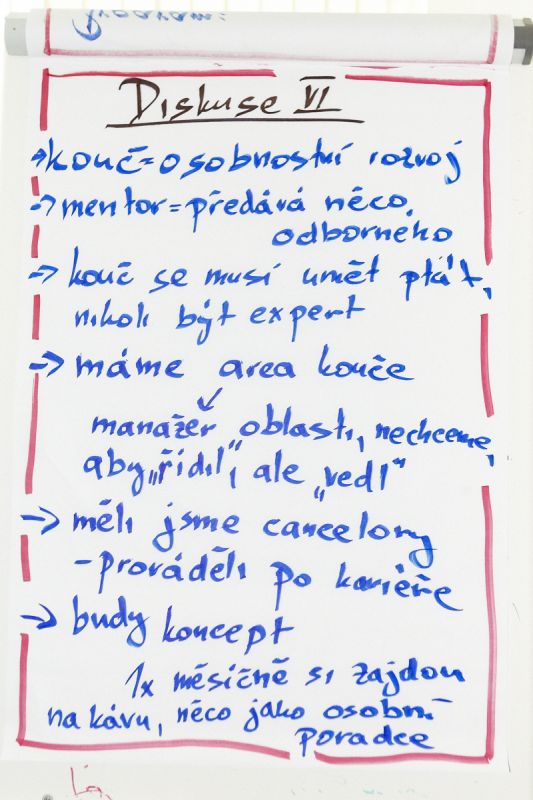 Program:
Diskuse VI
→ kouč = osobnostní rozvoj
→ mentor = předává něco
odborného
→ kouč se musí umět ptát,
nikoli být expert
→ máme area kouče
↙
manažer „oblasti, nechceme,
aby „řídil", ale „vedl"
→ měli jsme cancelory
- prováděli po kariéře
→ budy koncept
1x měsíčně si zajdou
na kávu, něco jako osobní
poradce